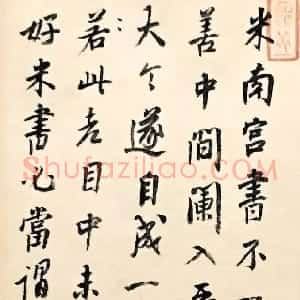 米南宫書不
善中間闌入
大令遂自成一
若此老目中未
好米書心當謂
Shufaziliao.COM